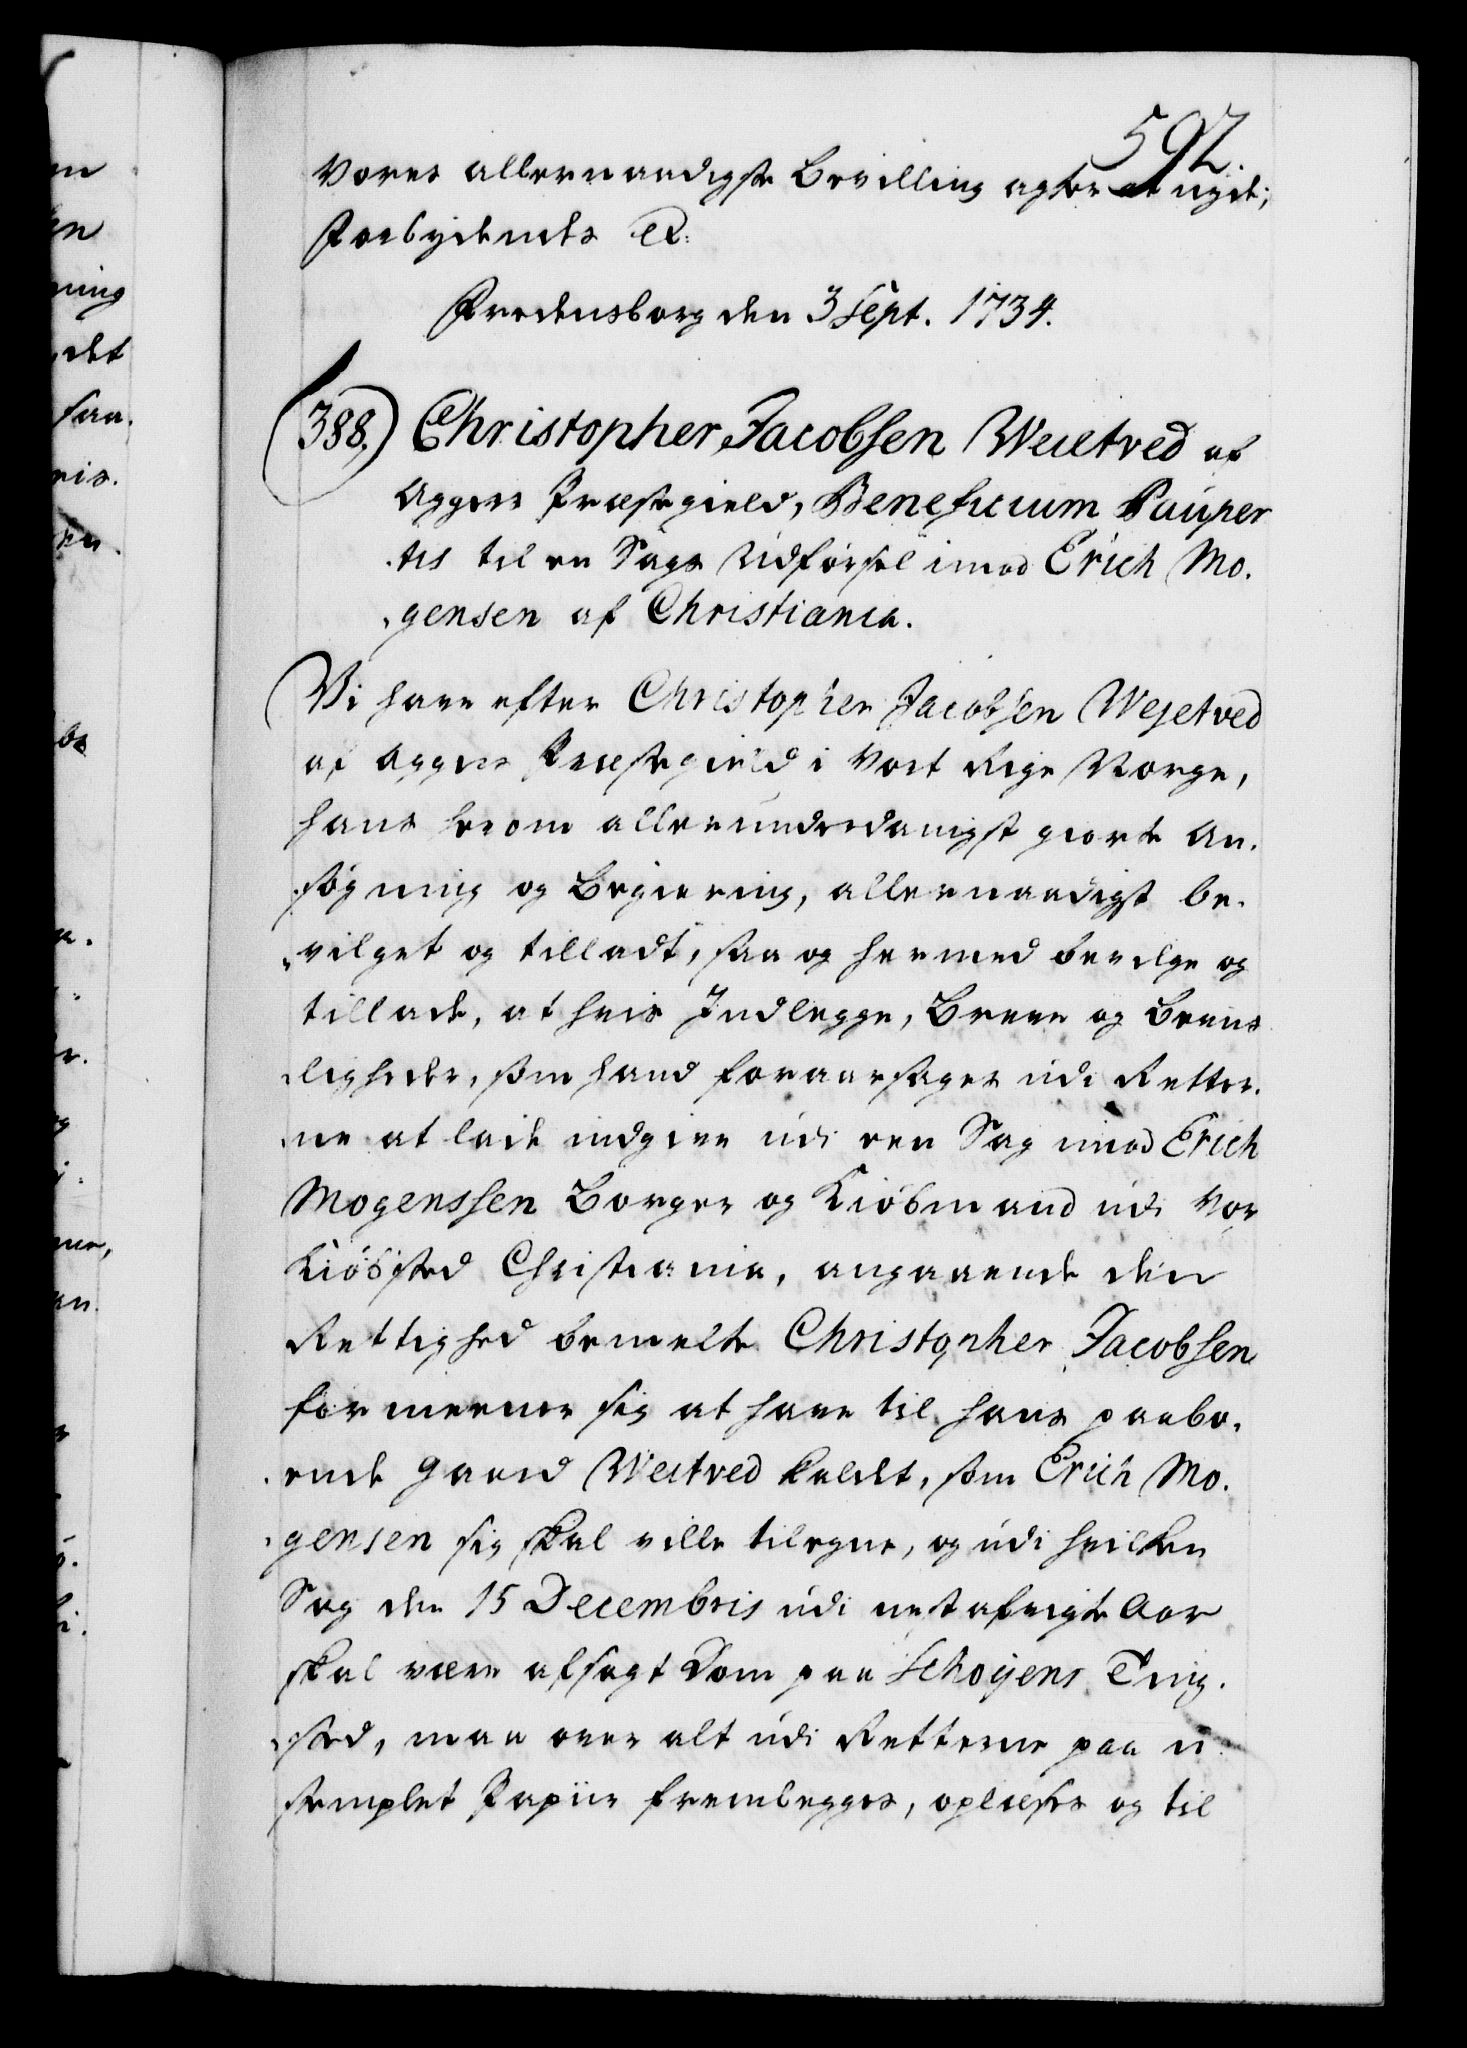 592.
Vores allernaadigste Bevilling agter at nyde;
Forbydendes etc:
Fredensborg den 3 Sept. 1734.
388.) Christopher Jacobsen Weietved af
Aggers Præstegield, Beneficium Pauper
-tis til en Sags Udførsel imod Erich Mo-
-gensen af Christiania.
Vi have efter Christopher Jacobsen Wejetved
af Aggers Præstegield i Vort Rige Norge,
hans herom allerunderdanigst giorte An-
søgning og Begiering, allernaadigst be-
-vilget og tilladt, saa og hermed bevilge og
tillade, at hvis Indlegge, Breve og Bevis-
ligheder, som hand foraarsages udi Retter-
-ne at lade indgive udi een Sag imod Erich
Mogenssen Borger og Kiøbmand udi Vor
Kiøbsted Christiania, angaaende den
Rettighed bemelte Christopher Jacobsen
formeener sig at have til hans paabo-
-ende Gaard Weitved kaldt, som Erich Mo-
-gensen sig skal ville tilegne, og udi hvilken
Sag den 15 Decembris udi nestafvigte Aar
skal være afsagt Dom paa Schøyens Ting-
-sted, maa over alt udi Retterne paa u-
stemplet Papiir fremlegges, oplæses og til